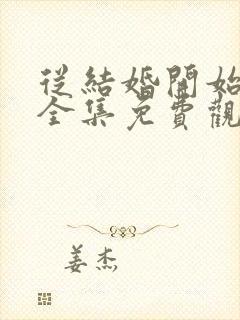 從結婚開始
全集免費觀
姜杰